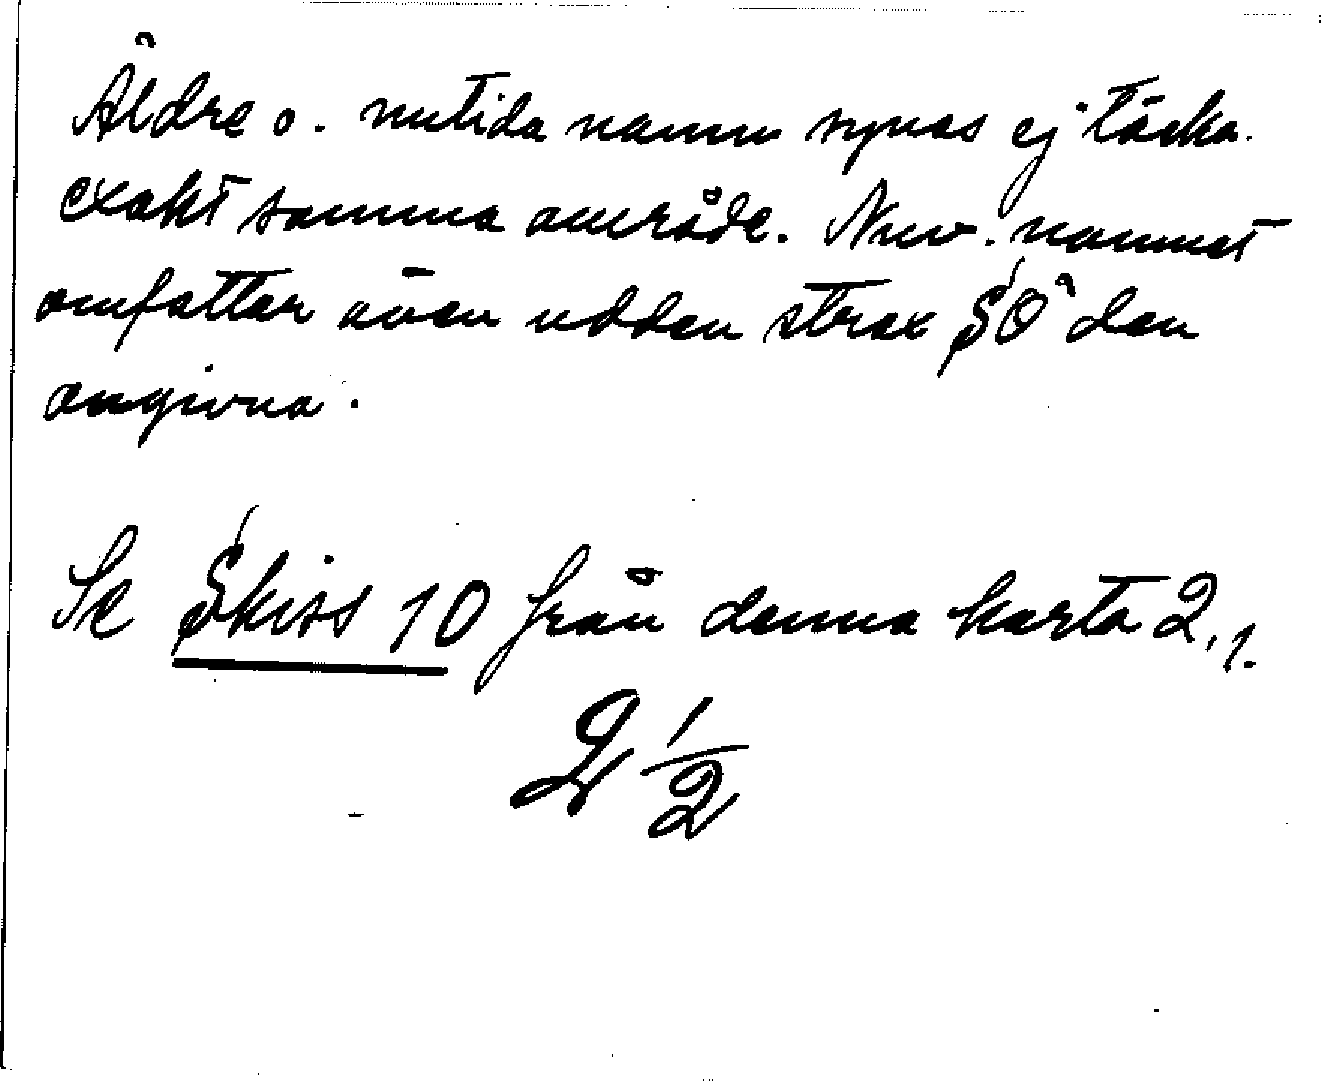 Äldre o. nutida namn synas ej täcka
exakt samma område. Nuv. namnet
omfattar även udden strax SO den
angivna.
Se Skiss 10 från denna karta 2.1.
2 1/2